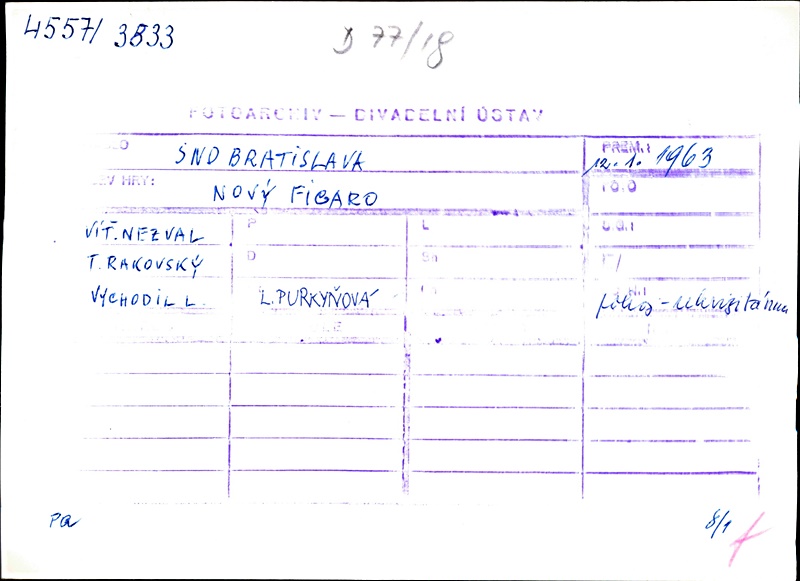 4557/ 3833
D 77/18
FOTOARCHIV — DIVADELNÍ ÚSTAV
SND BRATISLAVA
PREM.: 12. 1. 1963
HRY: NOVÝ FIGARO
VÍT. NEZVAL
P
L
T. RAKOVSKÝ
D
VYCHODIL L.
L. PURKYŇOVÁ
Pa
8/1